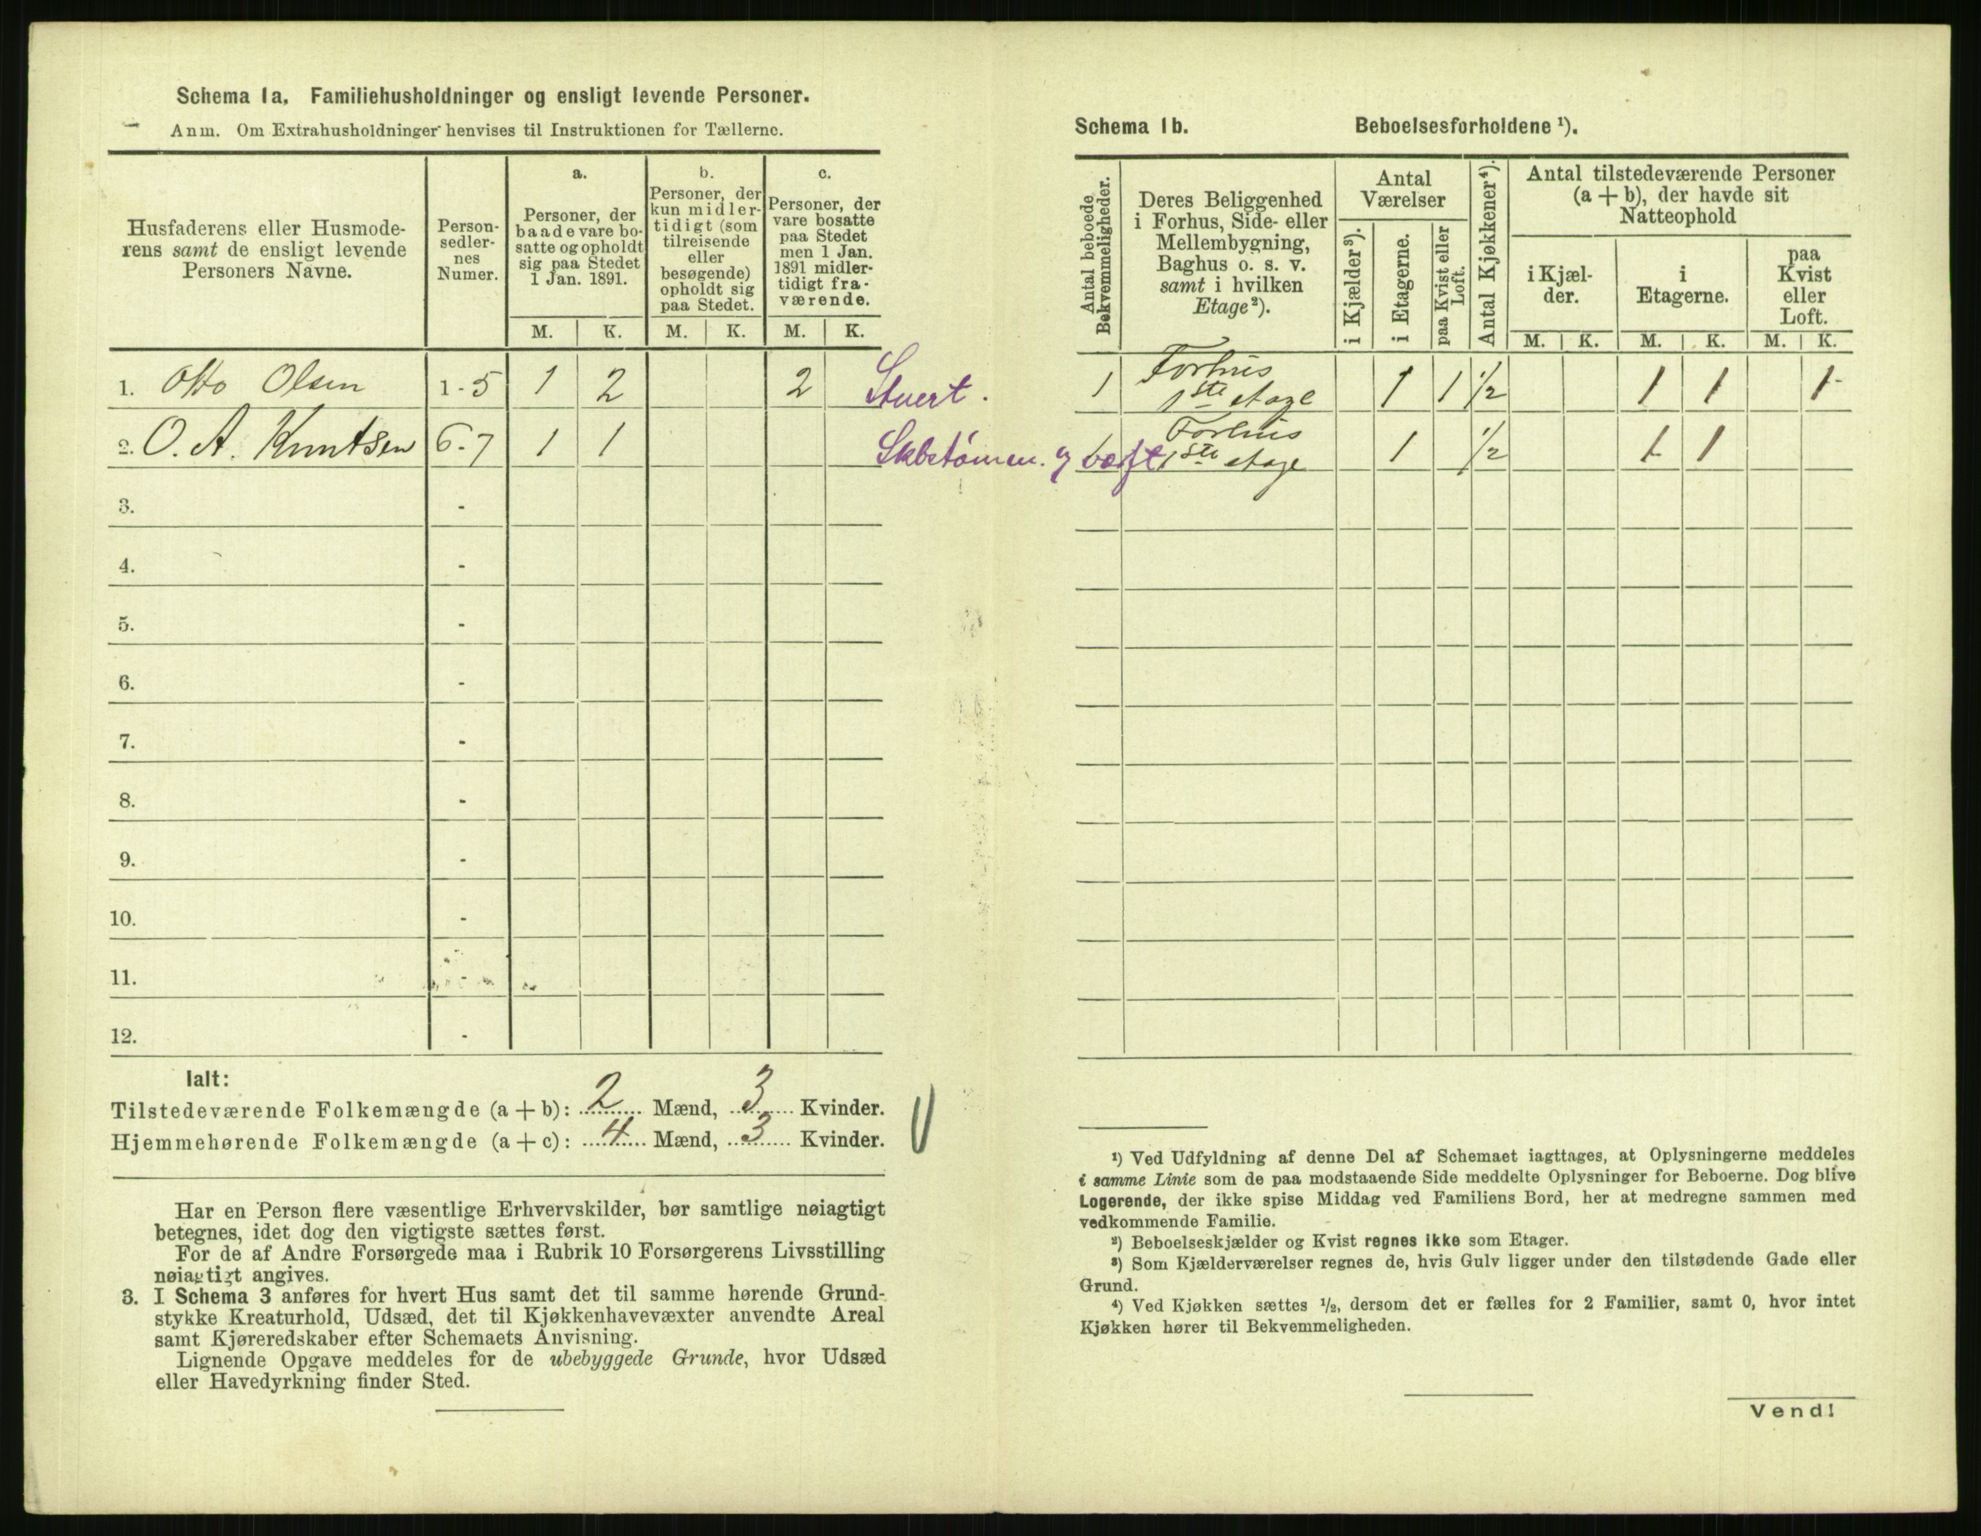 Schema 1a. Familiehusholdninger og ensligt levende Personer.
Anm. Om Extrahusholdninger henvises til Instruktionen for Tællerne.
Husfaderens eller Husmode-
rens samt de ensligt levende
Personers Navne.
Person-
sedler-
nes
Numer.
a.
Personer, der
baade vare bo-
satte og opholdt
sig paa Stedet
1 Jan. 1891.
b.
Personer, der
kun midler-
tidigt (som
tilreisende
eller
besøgende)
opholdt sig
paa Stedet.
c.
Personer, der
vare bosatte
paa Stedet
men 1 Jan.
1891 midler-
tidigt fra-
værende.
M. K. M. K. M. K.
1. Otto Olsen 1-5 1 2 2 Stuert.
2. O. A. Knutsen 6-7 1 1
3. -
4. -
5. -
6. -
7. -
8. -
9. -
10. -
11. -
12. -
Ialt:
Tilstedeværende Folkemængde (a + b): 2 Mænd, 3 Kvinder.
Hjemmehørende Folkemængde (a + c): 4 Mænd, 3 Kvinder.
Har en Person flere væsentlige Erhvervskilder, bør samtlige nøiagtigt
betegnes, idet dog den vigtigste sættes først.
For de af Andre Forsørgede maa i Rubrik 10 Forsørgerens Livsstilling
nøiagtigt angives.
3. I Schema 3 anføres for hvert Hus samt det til samme hørende Grund-
stykke Kreaturhold, Udsæd, det til Kjøkkenhavevæxter anvendte Areal
samt Kjøreredskaber efter Schemaets Anvisning.
Lignende Opgave meddeles for de ubebyggede Grunde, hvor Udsæd
eller Havedyrkning finder Sted.
Schema 1b. Beboelsesforholdene ¹).
Antal beboede
Bekvemmeligheder.
Deres Beliggenhed
i Forhus, Side- eller
Mellembygning,
Baghus o. s. v.
samt i hvilken
Etage²).
Antal
Værelser
i Kjælder³).
i Etagerne.
paa Kvist eller
Loft.
Antal Kjøkkener⁴).
Antal tilstedeværende Personer
(a + b), der havde sit
Natteophold
i Kjæl-
der.
i
Etagerne.
paa
Kvist
eller
Loft.
M. K. M. K. M. K.
1 Forhus
1ste etage 1 1 1/2 1 1 1
Forhus
1ste etage 1 1/2 1 1
¹) Ved Udfyldning af denne Del af Schemaet iagttages, at Oplysningerne meddeles
i samme Linie som de paa modstaaende Side meddelte Oplysninger for Beboerne. Dog blive
Logerende, der ikke spise Middag ved Familiens Bord, her at medregne sammen med
vedkommende Familie.
²) Beboelseskjælder og Kvist regnes ikke som Etager.
³) Som Kjælderværelser regnes de, hvis Gulv ligger under den tilstødende Gade eller
Grund.
⁴) Ved Kjøkken sættes ¹/₂, dersom det er fælles for 2 Familier, samt 0, hvor intet
Kjøkken hører til Bekvemmeligheden.
Vend!